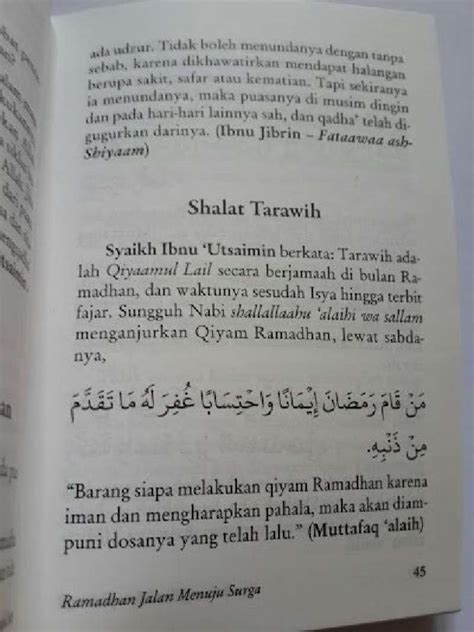 ada udzur. Tidak boleh menundanya dengan tanpa
sebab, karena dikhawatirkan mendapat halangan
berupa sakit, safar atau kematian. Tapi sekiranya
ia menundanya, maka puasanya di musim dingin
dan pada hari-hari lainnya sah, dan qadha’ telah di-
gugurkan darinya. (Ibnu Jibrin – Fataawaa ash-
Shiyaam)
Shalat Tarawih
Syaikh Ibnu ‘Utsaimin berkata: Tarawih ada-
lah Qiyaamul Lail secara berjamaah di bulan Ra-
madhan, dan waktunya sesudah Isya hingga terbit
fajar. Sungguh Nabi shallallaahu ‘alaihi wa sallam
menganjurkan Qiyam Ramadhan, lewat sabda-
nya,
مَنْ قَامَ رَمَضَانَ إِيْمَانًا وَاحْتِسَابًا غُفِرَ لَهُ مَا تَقَدَّمَ
مِنْ ذَنْبِهِ.
“Barang siapa melakukan qiyam Ramadhan karena
iman dan mengharapkan pahala, maka akan diam-
puni dosanya yang telah lalu.” (Muttafaq ‘alaih)
45
Ramadhan Jalan Menuju Surga